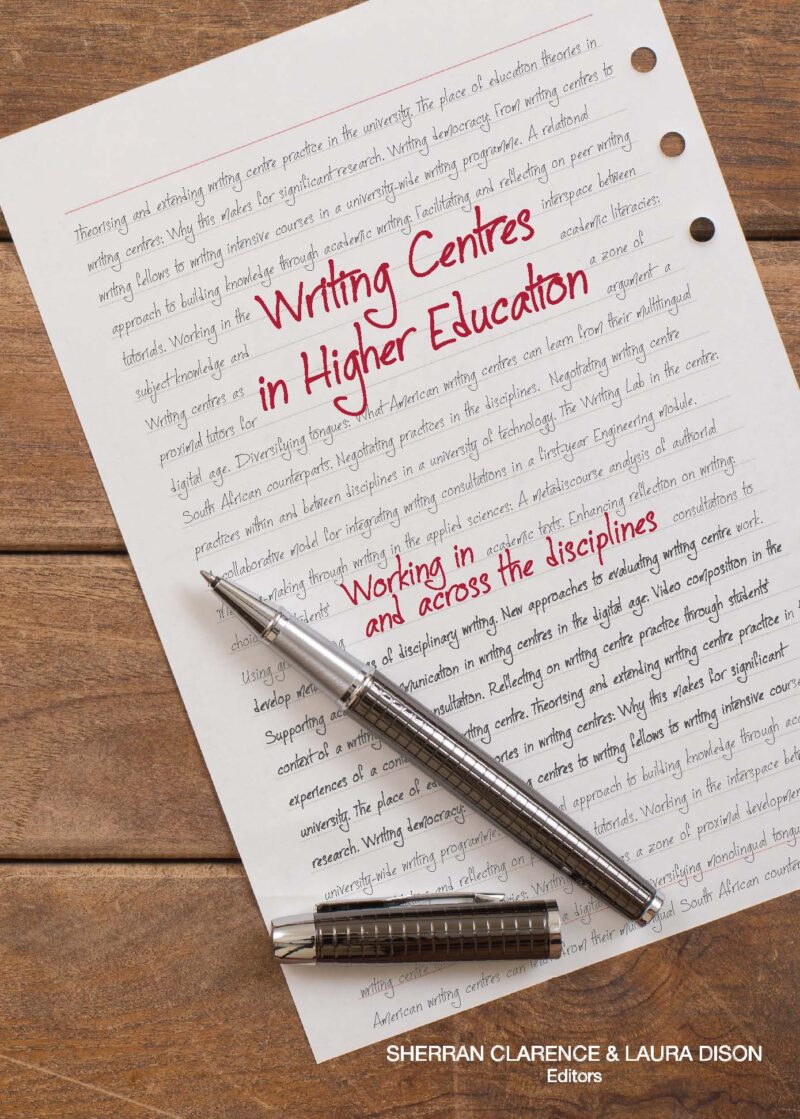 Theorising and extending writing centre practice in the university. The place of education theories in
writing centres: Why this makes for significant research. Writing democracy: From writing centres to
writing fellows to writing intensive courses in a university-wide writing programme. A relational
approach to building knowledge through academic writing: Facilitating and reflecting on peer writing
tutorials. Working in the interspace between
subject knowledge and academic literacies:
Writing centres as a zone of
proximal tutors for argument a
Writing Centres
in Higher Education
digital age. Diversifying tongues: What American writing centres can learn from their multilingual
South African counterparts. Negotiating practices in the disciplines. Negotiating writing centre
practices within and between disciplines in a university of technology. The Writing Lab in the centre:
collaborative model for integrating writing consultations in a first-year Engineering module.
-making through writing in the applied sciences: A metadiscourse analysis of authorial
academic texts. Enhancing reflection on writing:
Using consultations to
Working in
and across the disciplines
develop of disciplinary writing. New approaches to evaluating writing centre work.
Supporting communication in writing centres in the digital age: Video composition in the
context of a consultation. Reflecting on writing centre practice through students'
experiences of a centre. Theorising and extending writing centre practice in
university. The place of in writing centres: Why this makes for significant
research. Writing democracy: centres to writing fellows to writing intensive
university-wide writing programme. approach to building knowledge through
and reflecting on tutorials. Working in the interspace
Writing as a zone of proximal
a digital Diversifying monolingual
writing centre from their South African
American writing centres can
SHERRAN CLARENCE & LAURA DISON
Editors